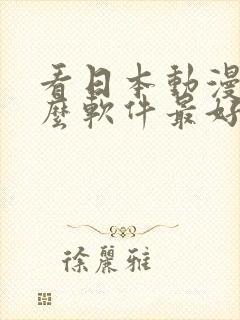 看日本動漫
麼軟件最好
徐麗雅